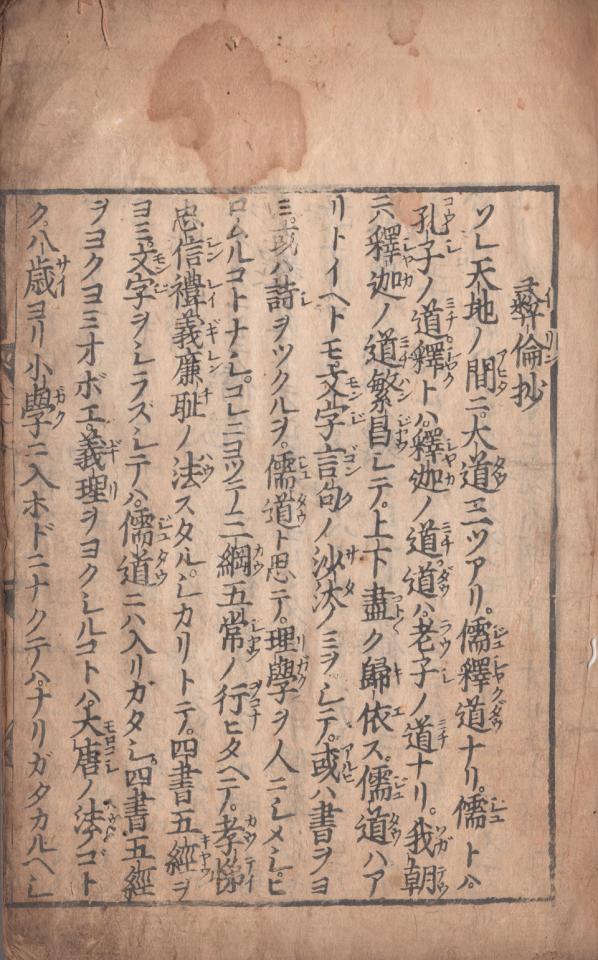 彝倫抄
ソレ天地ノ間ニ。大道三ツアリ。儒釋道ナリ。儒トハ。
孔子ノ道。釋トハ。釋迦ノ道。道ハ。老子ノ道ナリ。我朝
ニハ釋迦ノ道繁昌シテ。上下盡ク歸依ス。儒道ハア
リトイヘトモ。文字言句ノ沙汰ノミヲシテ。或ハ書ヲヨ
ミ。或ハ詩ヲツクルヲ。儒道ト思テ。理學ヲ人ニシメシ。ヒ
ロムルコトナシ。コレニヨツテ三綱五常ノ行ヒタヘテ。孝悌
忠信禮義廉耻ノ法スタル。シカリトテ。四書五經ヲ
ヨミ。文字ヲシラズシテハ。儒道ニハ入リガタシ。四書五經
ヲヨクヨミオボエ。義理ヲヨクシルコトハ。大唐ノ法ノゴト
ク。八歳ヨリ小學ニ入ホドニナクテハ。ナリガタカルヘシ